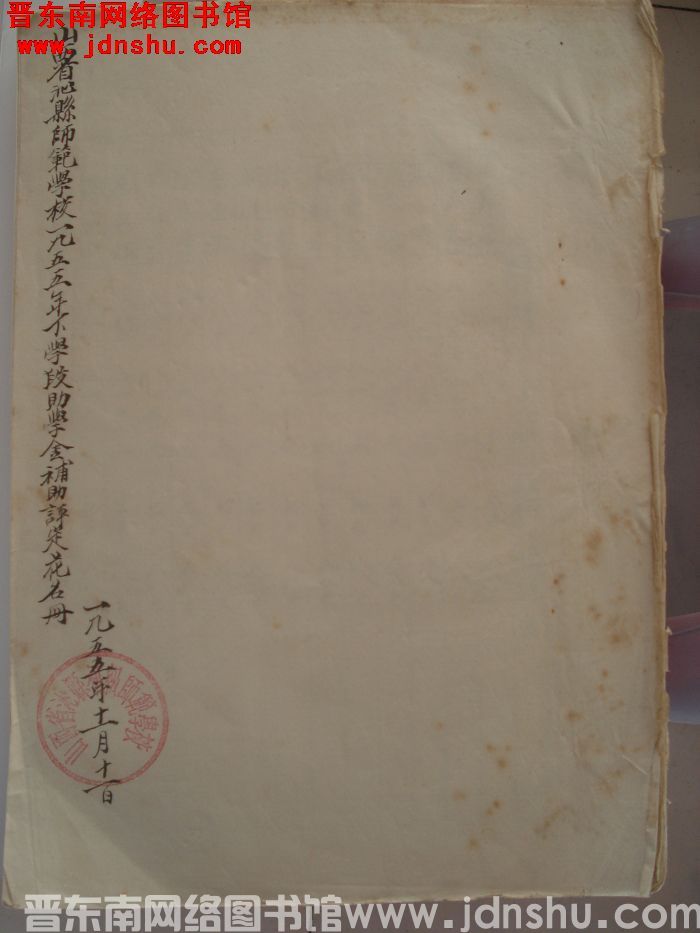 晋东南网络图书馆
www.jdnshu.com
山西省沁縣師範學校一九五五年下學段助學金補助評定花名冊
一九五五年十一月十一日
山西省沁縣師範學校
晋东南网络图书馆 www.jdnshu.com